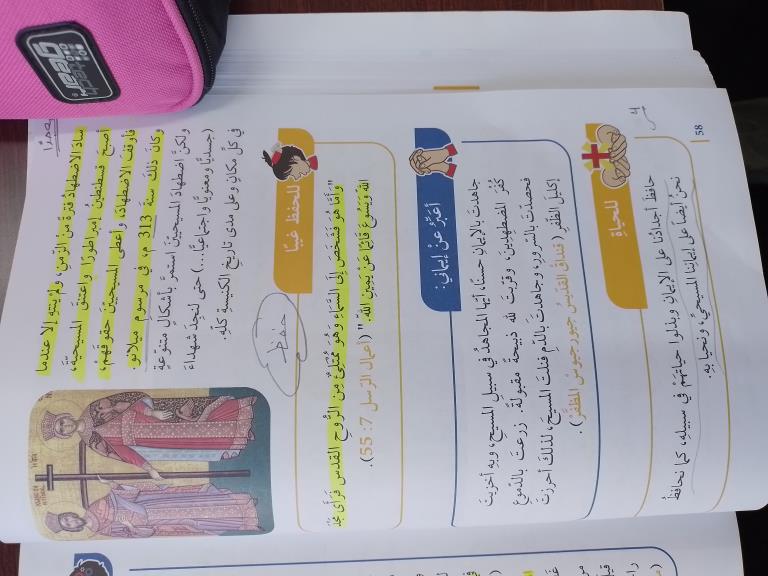 سادَ الاضطهادُ فترةً منَ الزّمنِ، ولمْ ينتهِ إلا عندما
أصبحَ قسطنطينُ إمبراطورًا واعتنقَ المسيحيّةَ،
فأوقفَ الاضطهادَ، وأعطى المسيحيينَ حقوقَهُمْ،
وكانَ ذلكَ سنةَ 313 م، في مرسومِ ميلانو.
ولكنَّ اضطهادَ المسيحيينَ استمرَّ بأشكالٍ متنوّعةٍ
(جسديًّا ومعنويًّا واجتماعيًّا...) حتى لنجِدَ شهداءَ
في كلِّ مكانٍ وعلى مدى تاريخِ الكنيسةِ كلِّهِ.
للحفظِ غيبًا
حفظ
"وأمّا هو فشَخَصَ إلى السّماءِ وهوَ مُمتلئٌ منَ الرُّوحِ القدسِ فرَأى مَجْدَ
اللهِ ويَسُوعَ قائِمًا عَنْ يَمِينِ اللهِ." (أعمال الرّسل 7: 55).
أعَبّرُ عنْ إيماني:
جاهدتَ بالإيمانِ حسنًا، أيّها المجاهدُ في سبيلِ المسيحِ، وبهِ أخزيتَ
كُفرَ المضطهِدينَ، وقرّبتَ للهِ ذبيحةً مقبولةً. زرعتَ بالدّموعِ
فحصدتَ بالسّرورِ، وجاهدتَ بالدّمِ فنلتَ المسيحَ، لذلكَ أحرزتَ
إكليلَ الظّفرِ (قنداق القدّيس جيورجيوسَ المظفّر).
للحياةِ
حافظَ أجدادُنا على الإيمانِ وبذلوا حياتَهُمْ في سبيلِهِ، كما نحافظُ
نحنُ أيضًا على إيمانِنا المسيحيِّ، ونحيا بهِ.
58
tech
Gear